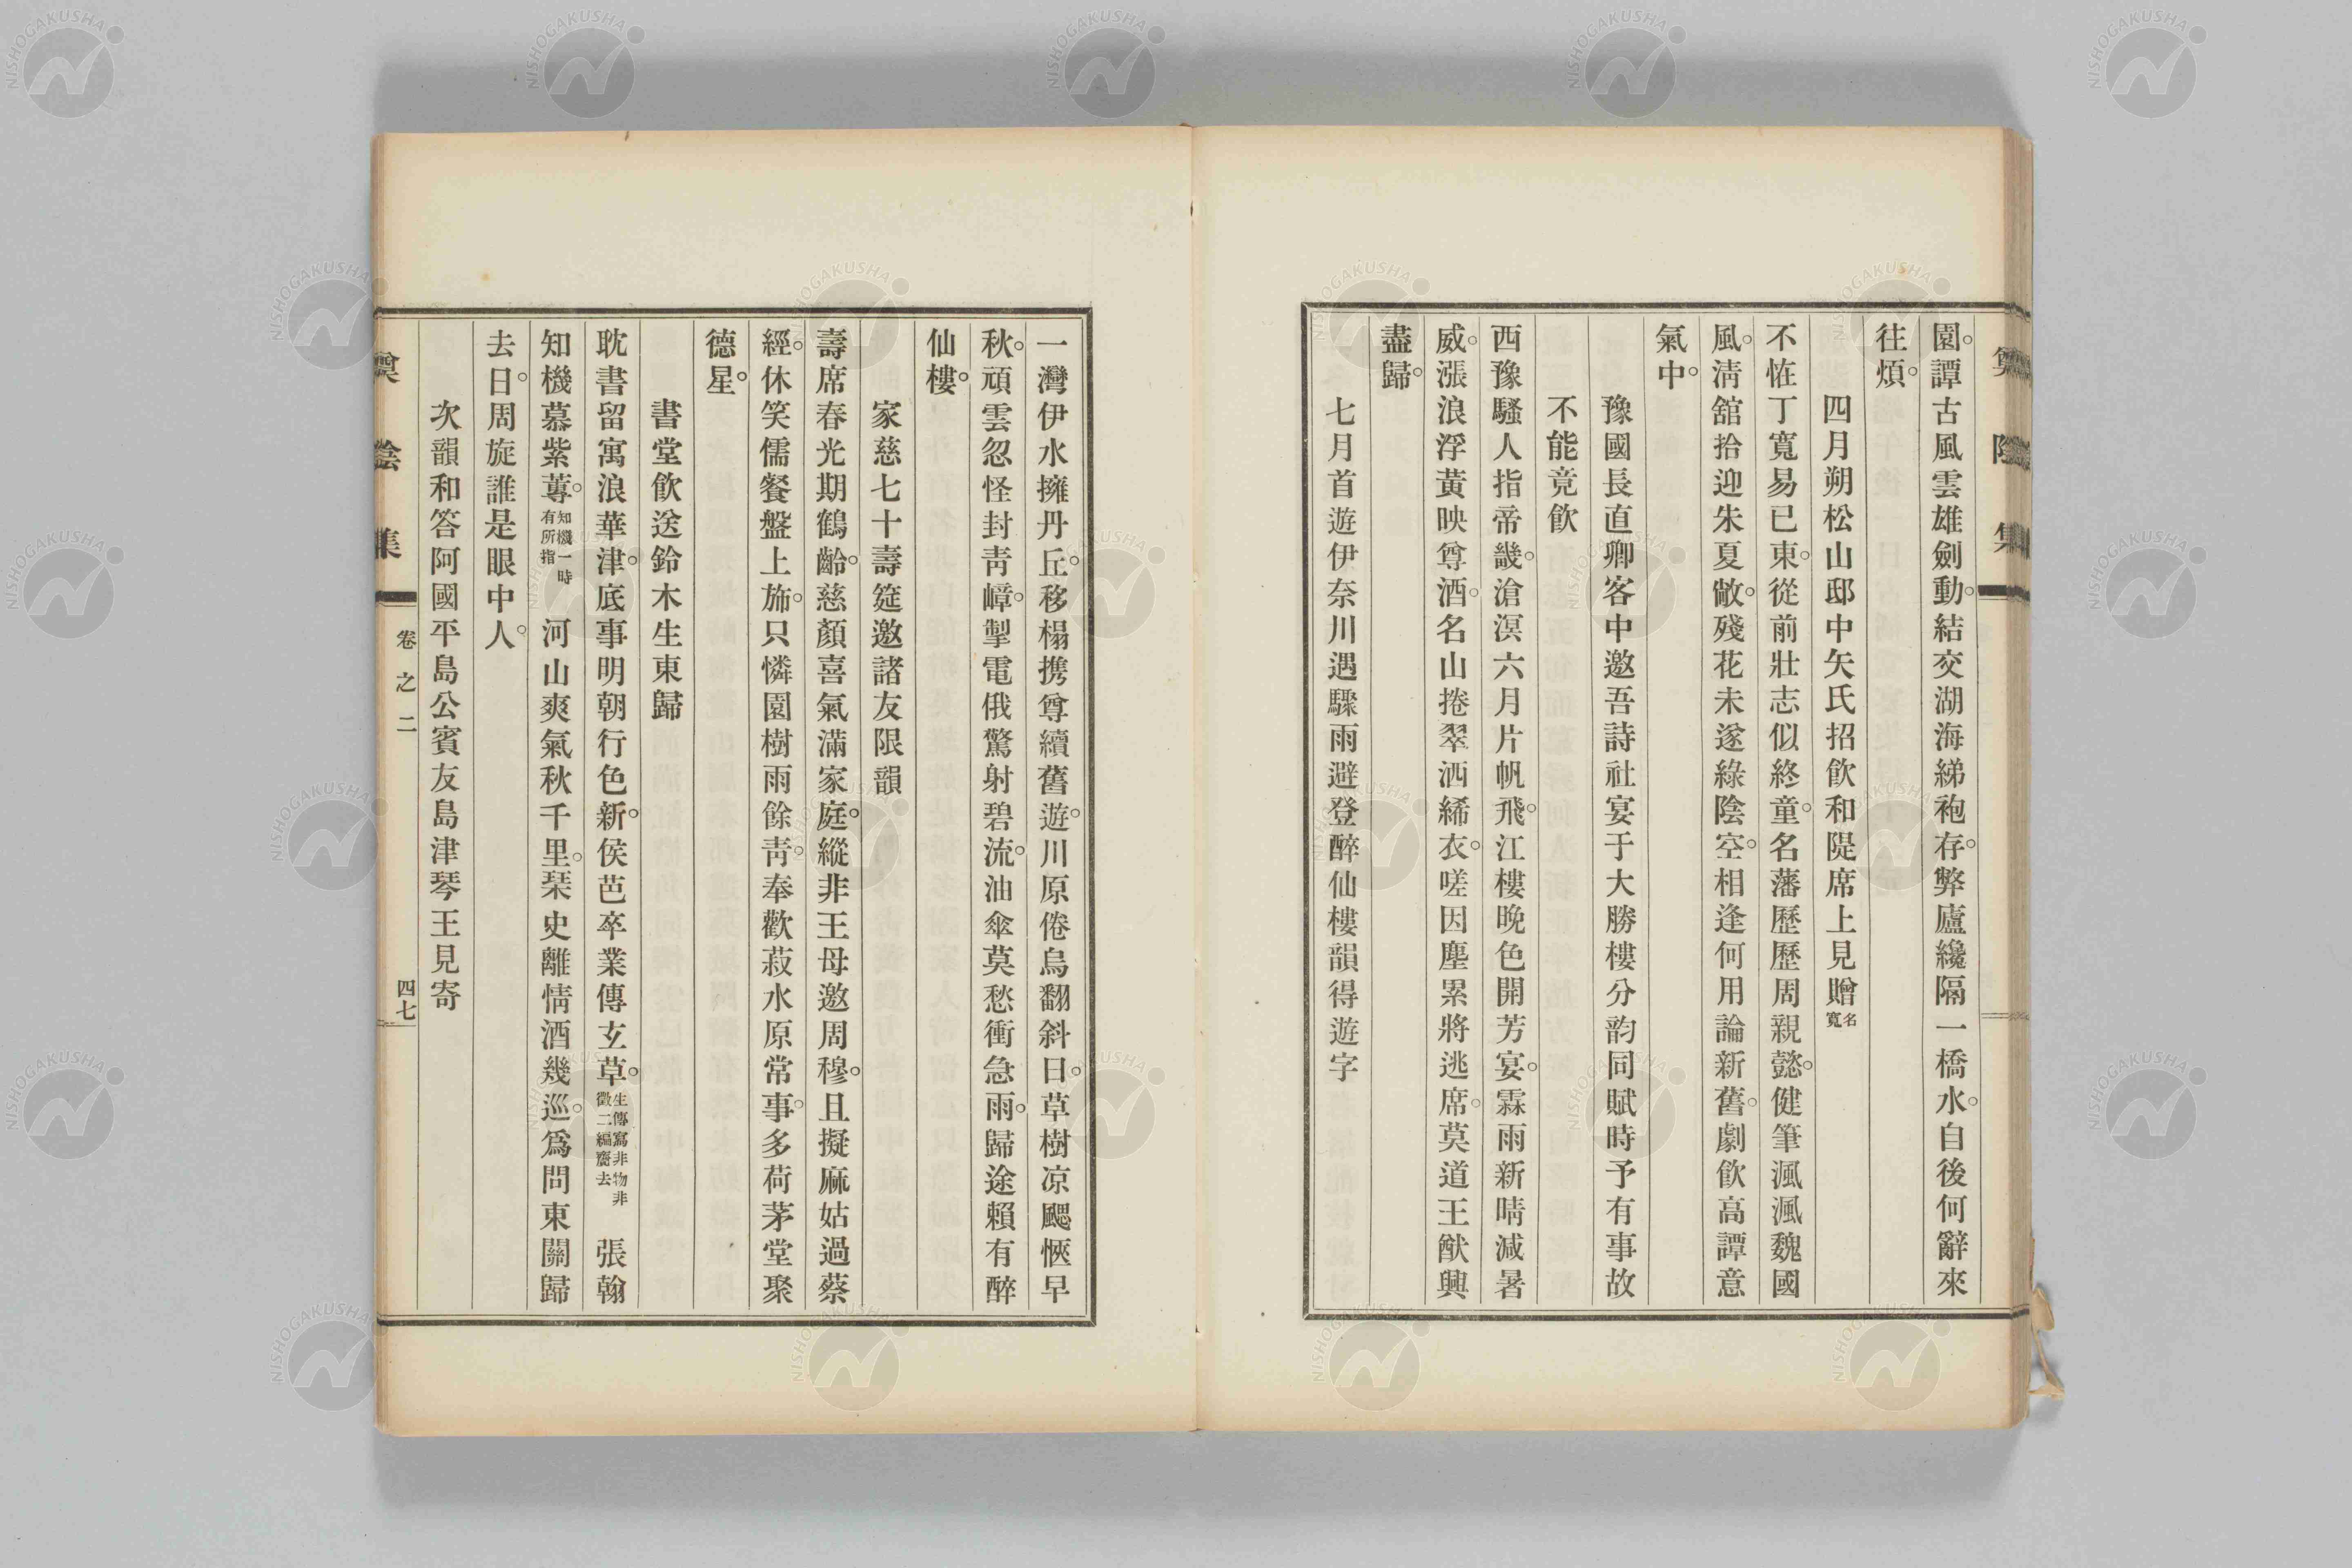 園。譚古風雲雄劍動。結交湖海綈袍存。弊廬纔隔一橋水。自後何辭來
往煩。
四月朔松山邸中矢氏招飲和隄席上見贈名寬
不恠丁寬易已東。從前壯志似終童。名藩歷歷周親懿。健筆渢渢魏國
風。淸舘拾迎朱夏敞。殘花未遂綠陰空。相逢何用論新舊。劇飲高譚意
氣中。
豫國長直卿客中邀吾詩社宴于大勝樓分韵同賦時予有事故
不能竟飲
西豫騷人指帝畿。滄溟六月片帆飛。江樓晚色開芳宴。霖雨新晴减暑
威。漲浪浮黃映尊酒。名山捲翠洒絺衣。嗟因塵累將逃席。莫道王猷興
盡歸。
七月首遊伊奈川遇驟雨避登醉仙樓韻得遊字
一灣伊水擁丹丘。移榻携尊續舊遊。川原倦烏翻斜日。草樹凉飔愜早
秋。頑雲忽怪封靑嶂。掣電俄驚射碧流。油傘莫愁衝急雨。歸途賴有醉
仙樓。
家慈七十壽筵邀諸友限韻
壽席春光期鶴齡。慈顏喜氣滿家庭。縱非王母邀周穆。且擬麻姑過蔡
經。休笑儒餐盤上施。只憐園樹雨餘靑。奉歡菽水原常事。多荷茅堂聚
德星。
書堂飲送鈴木生東歸
耽書留寓浪華津。底事明朝行色新。侯芭卒業傳玄草。生傳寫非物非徵二編齎去 張翰
知機慕紫蓴。知機一時有所指 河山爽氣秋千里。琹史離情酒幾巡。爲問東關歸
去日。周旋誰是眼中人。
次韻和答阿國平島公賓友島津琴王見寄
卷之二
四七
NISHOGAKUSHA